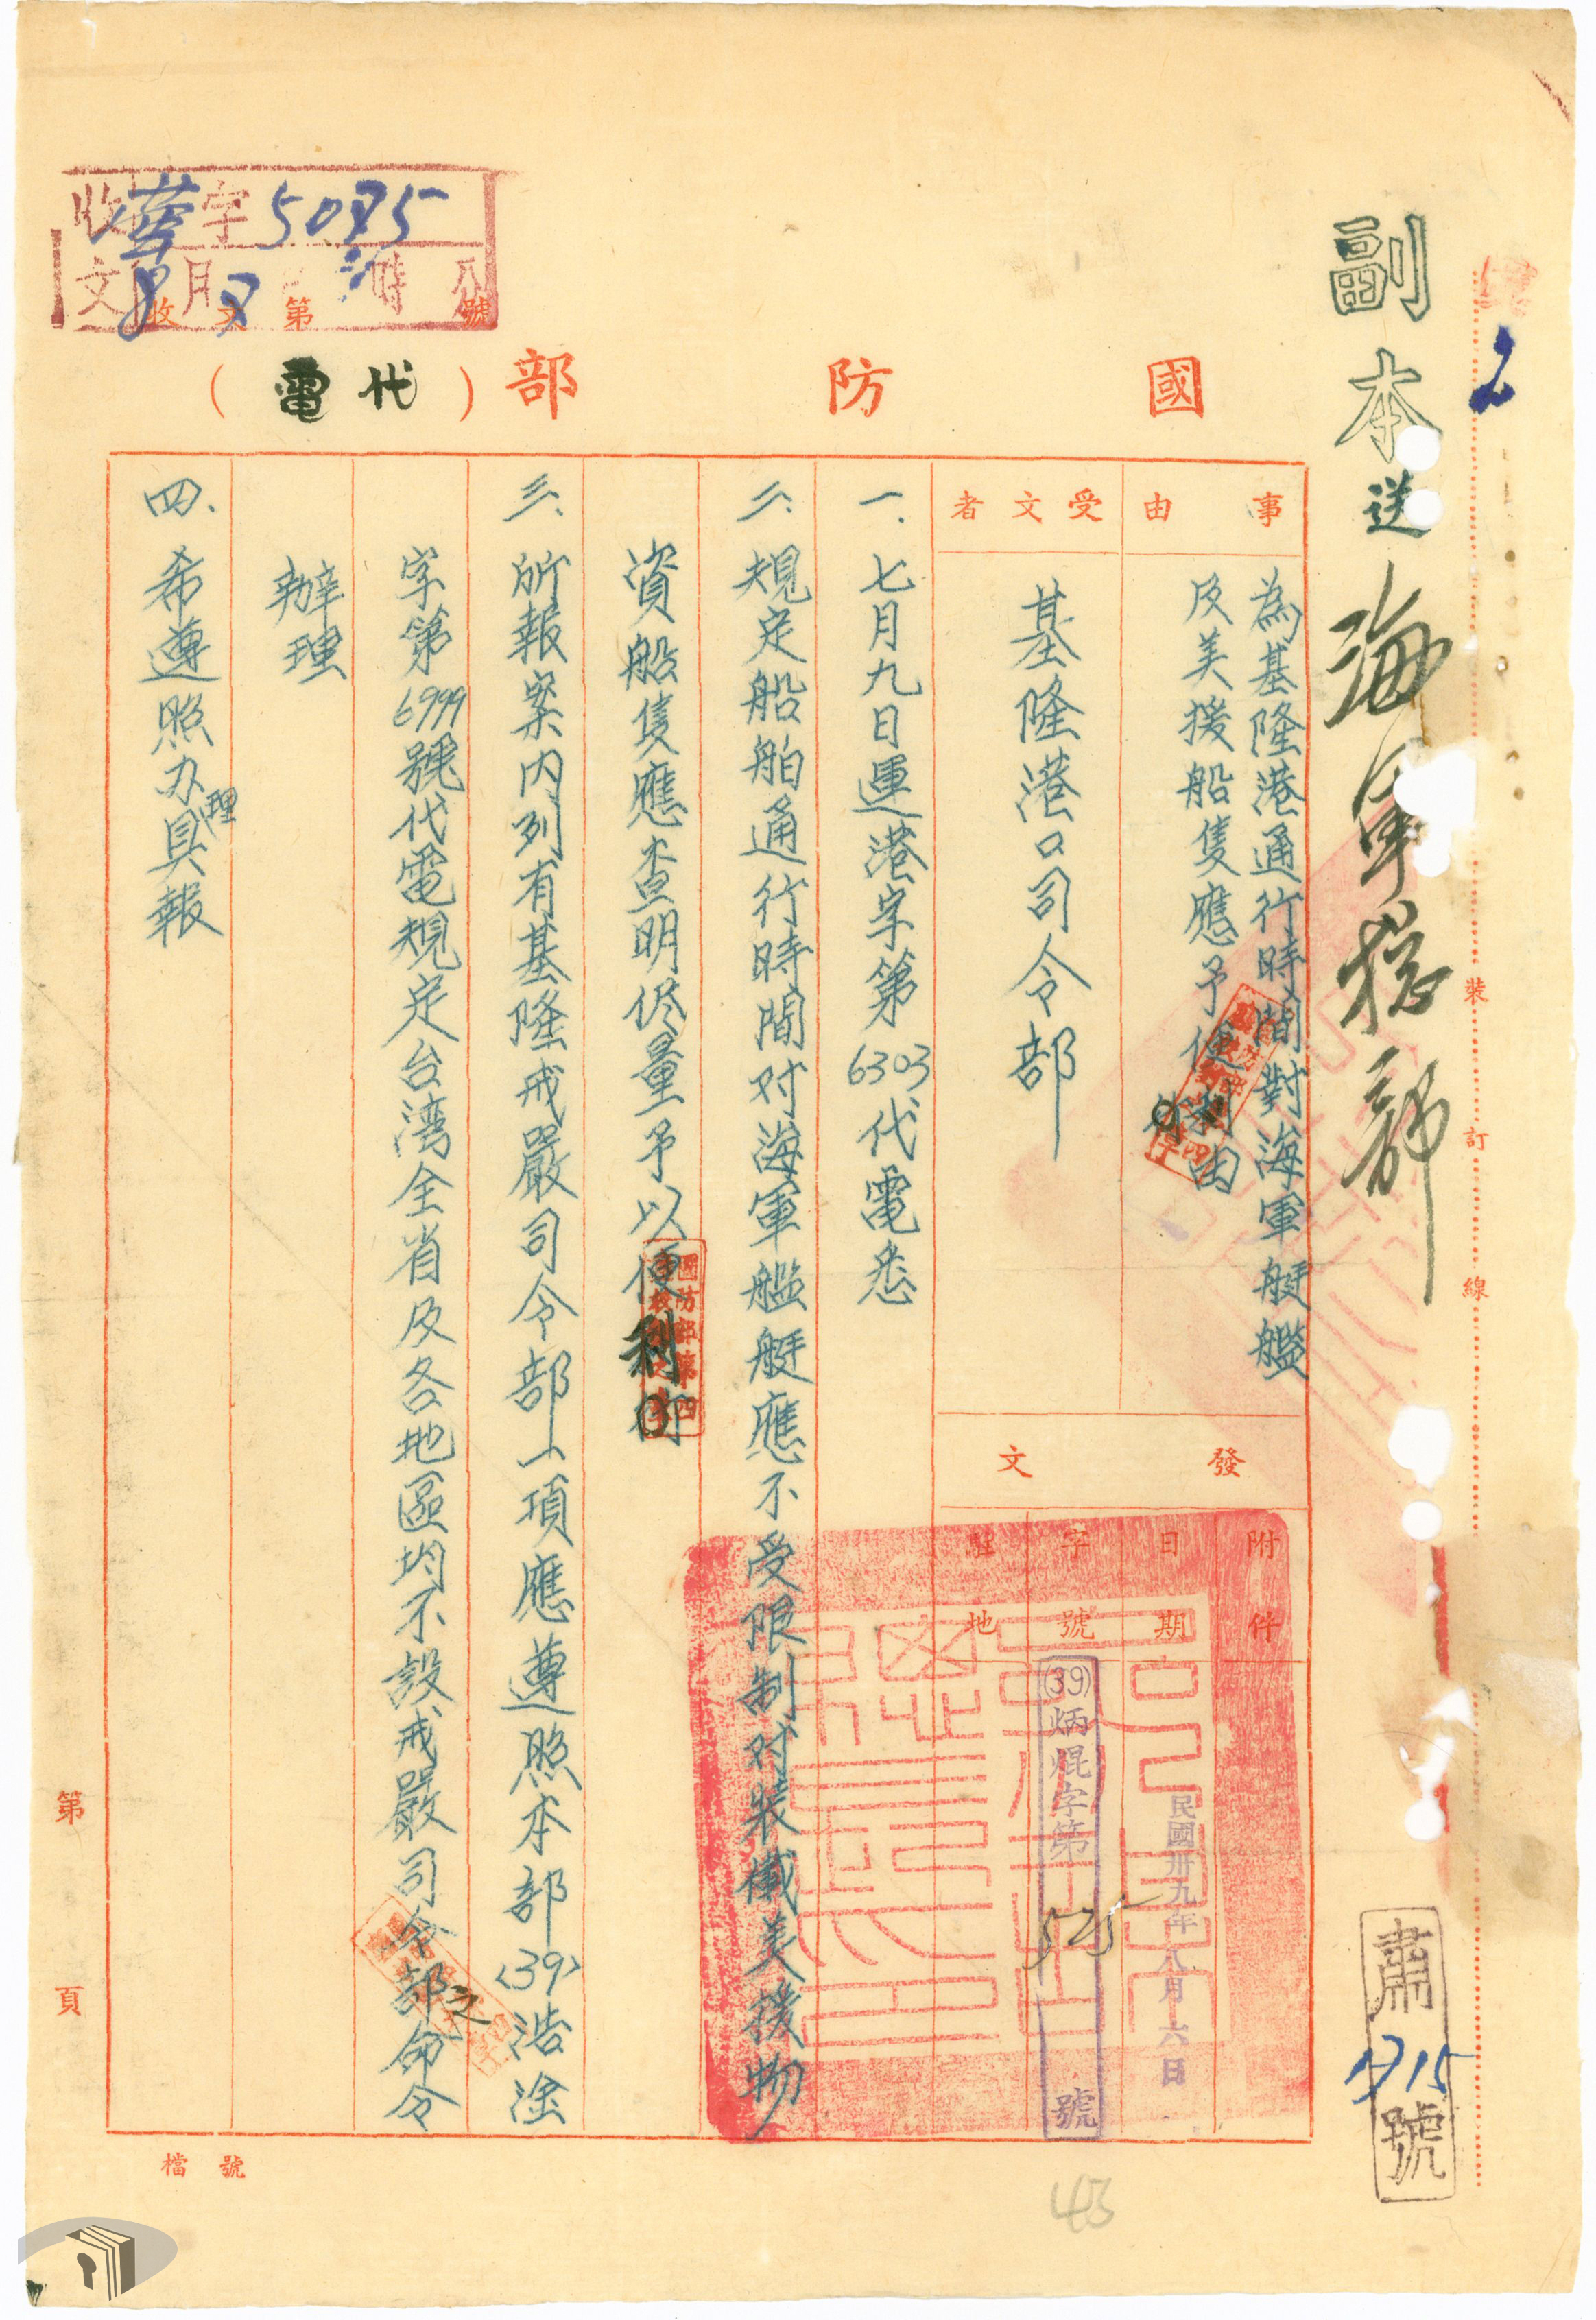 副本送海軍總部
國防部（代電）
收文第號
收字5075
文月時
事由
為基隆港通行時間對海軍艇艦
及美援船隻應予便利由
受文者
基隆港口司令部
發文
附件
日期
民國卅九年八月六日
字號
(39)炳焜字第525號
駐地
一、七月九日運港字第6303代電悉
二、規定船舶通行時間对海軍艦艇應不受限制对裝儎美援物
資船隻應查明侭量予以便利
三、所報案內列有基隆戒嚴司令部一項應遵照本部(39)浩淦
字第6999號代電規定台湾全省及各地區均不設戒嚴司令部之命令
辦理
四、希遵照办理具報
裝訂線
肅1715號
第頁
檔號
43
2